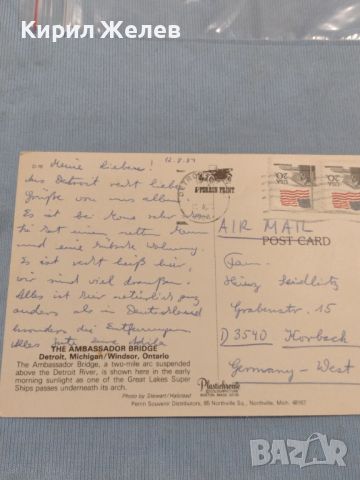 Кирил Желев
Meine Lieben! 12.8.84
Aus Detroit recht liebe
Grüße von uns allen.
Es ist bei Ilona sehr
Sie hat einen netten Mann
und eine hübsche Wohnung.
Es ist recht heiß hier,
wir sind viel draußen.
Alles ist hier natürlich ganz
anders als in Deutschland
besonders die Entfernungen.
Alles Gute eure
DETROIT
A PERSON PRINT
USA 20c
USA 20c
AIR MAIL
POST CARD
Fam.
Heinz Seidlitz
Grabenstr. 15
D 3540 Korbach
Germany-West
THE AMBASSADOR BRIDGE
Detroit, Michigan/Windsor, Ontario
The Ambassador Bridge, a two-mile arc suspended
above the Detroit River, is shown here in the early
morning sunlight as one of the Great Lakes Super
Ships passes underneath its arch.
Photo by Stewart/Halstead
Perrin Souvenir Distributors, 85 Northville Sq., Northville, Mich. 48167
Plastichrome
bazar.bg